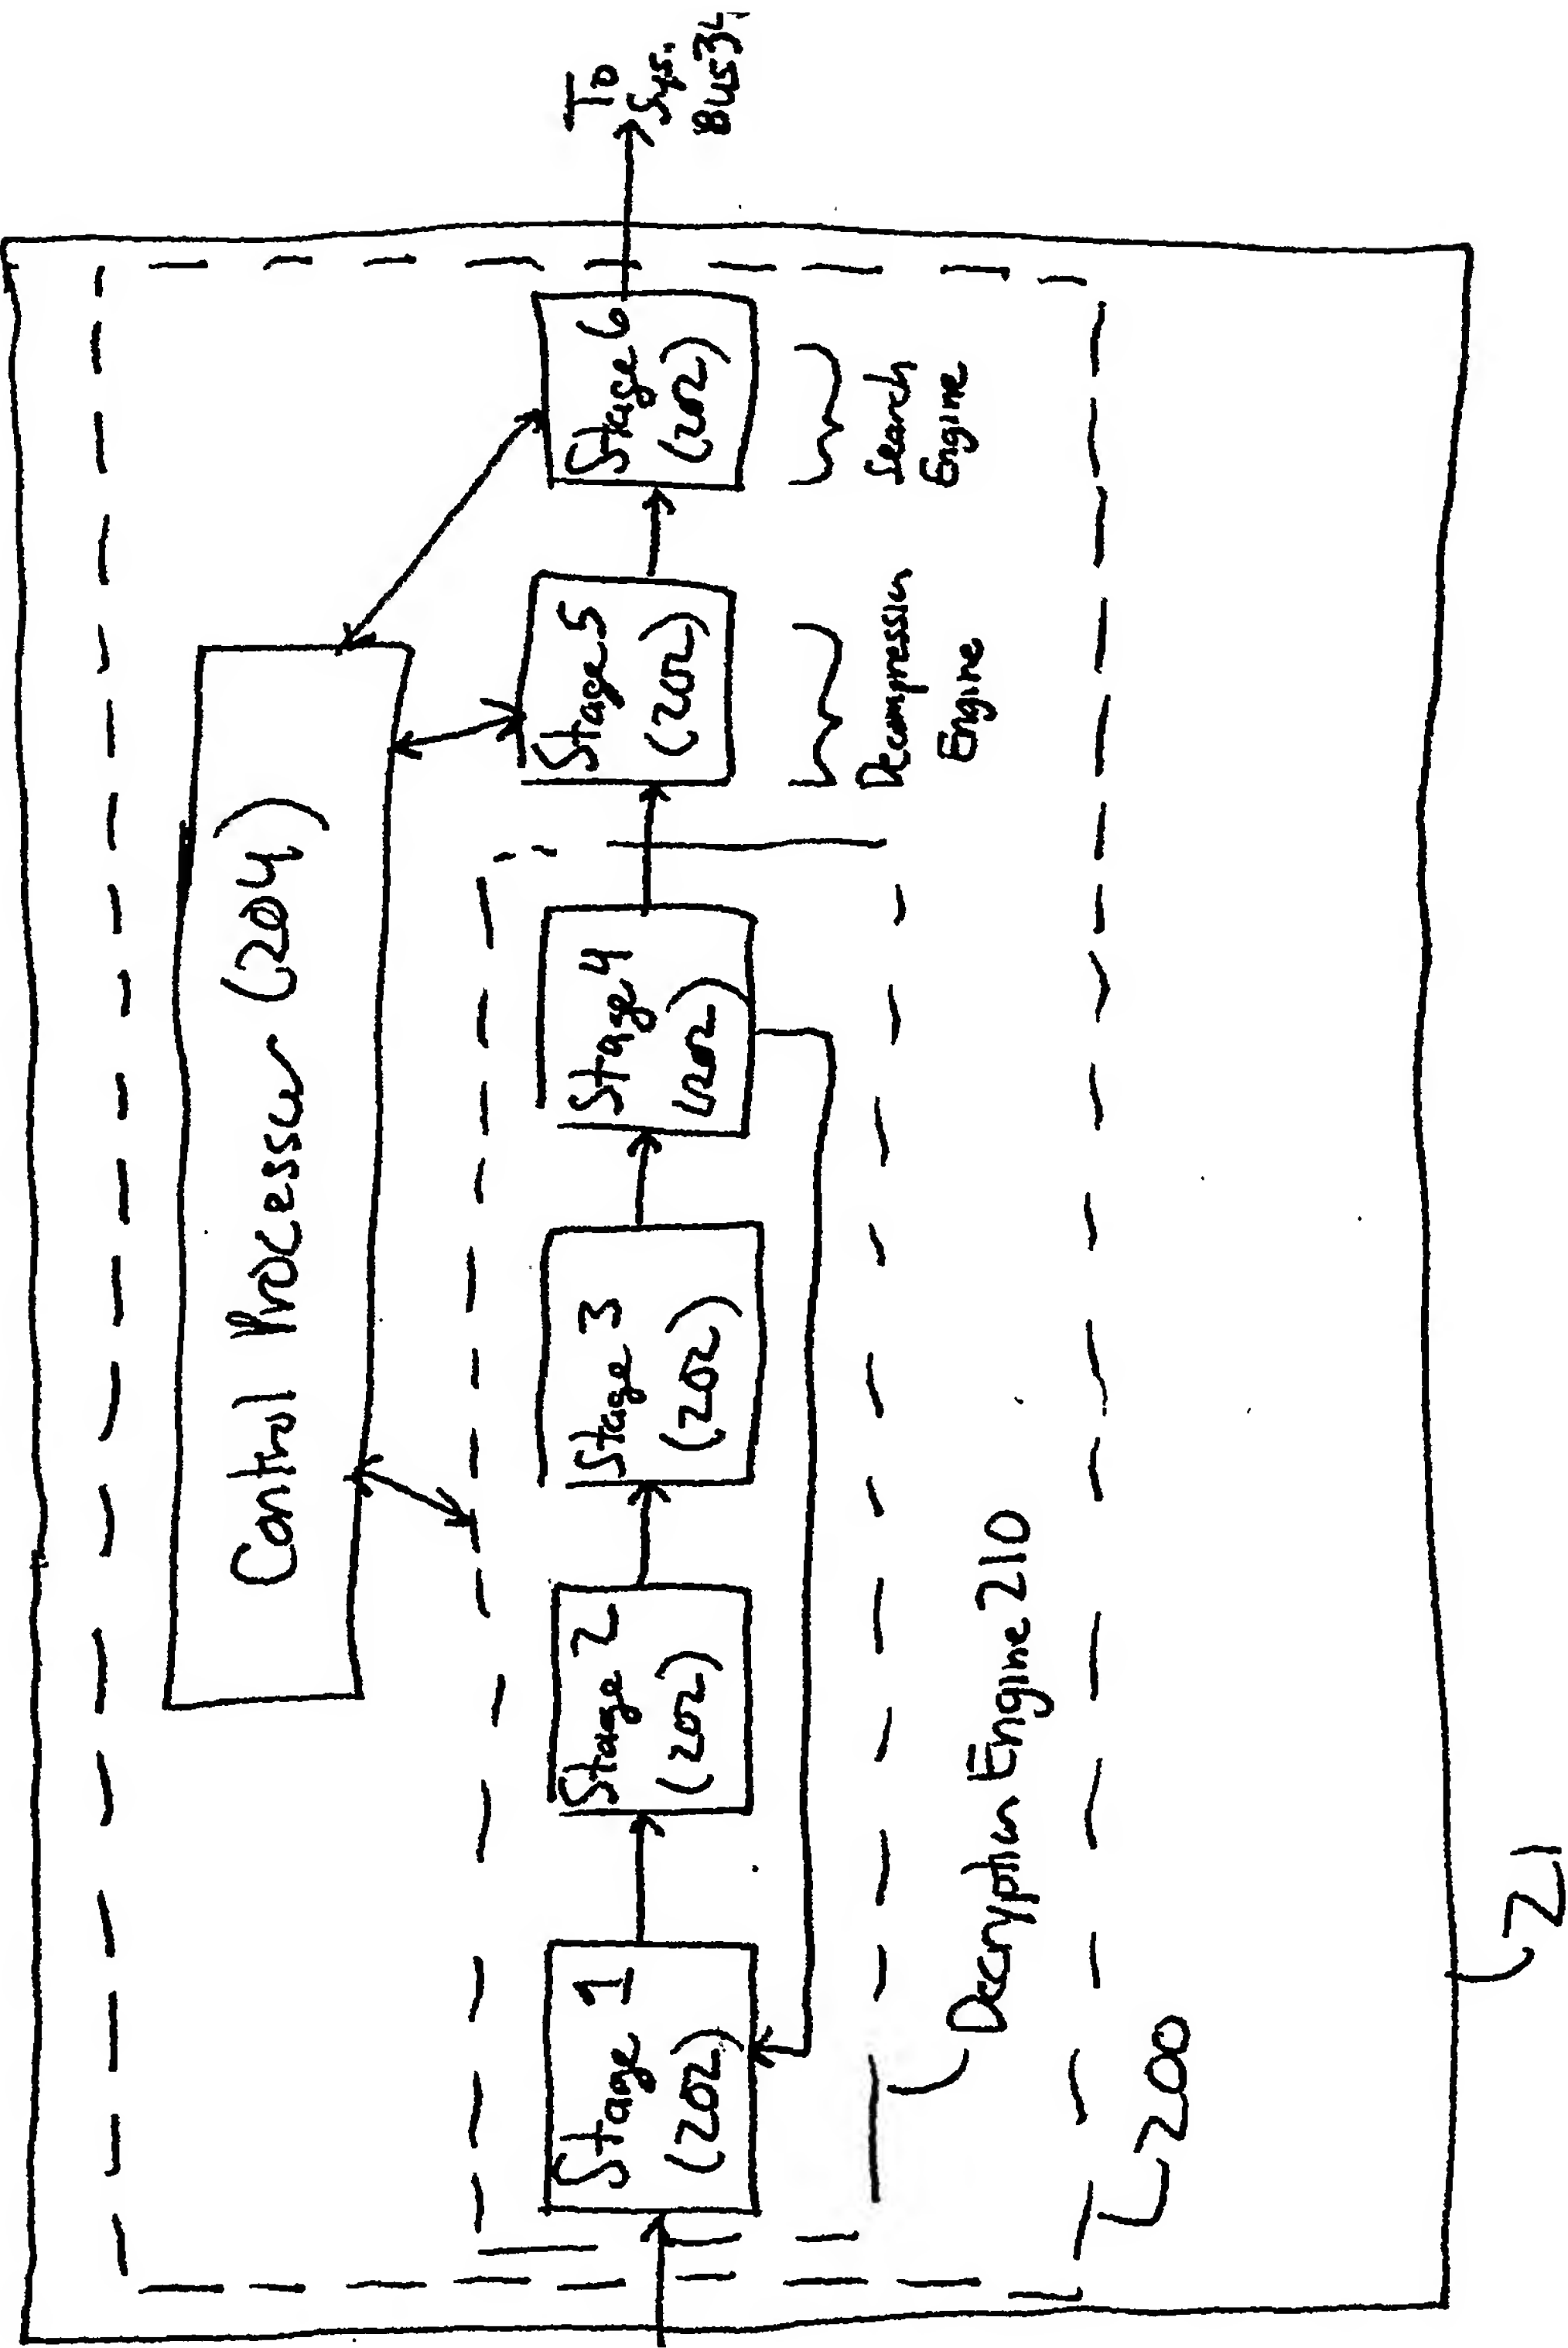 Control Processor (204)
Stage 1
(202)
Stage 2
(202)
Stage 3
(202)
Stage 4
(202)
Stage 5
(202)
Stage 6
(202)
To
Sys.
Decompression
Engine
Search
Engine
Decryption Engine 210
200
21